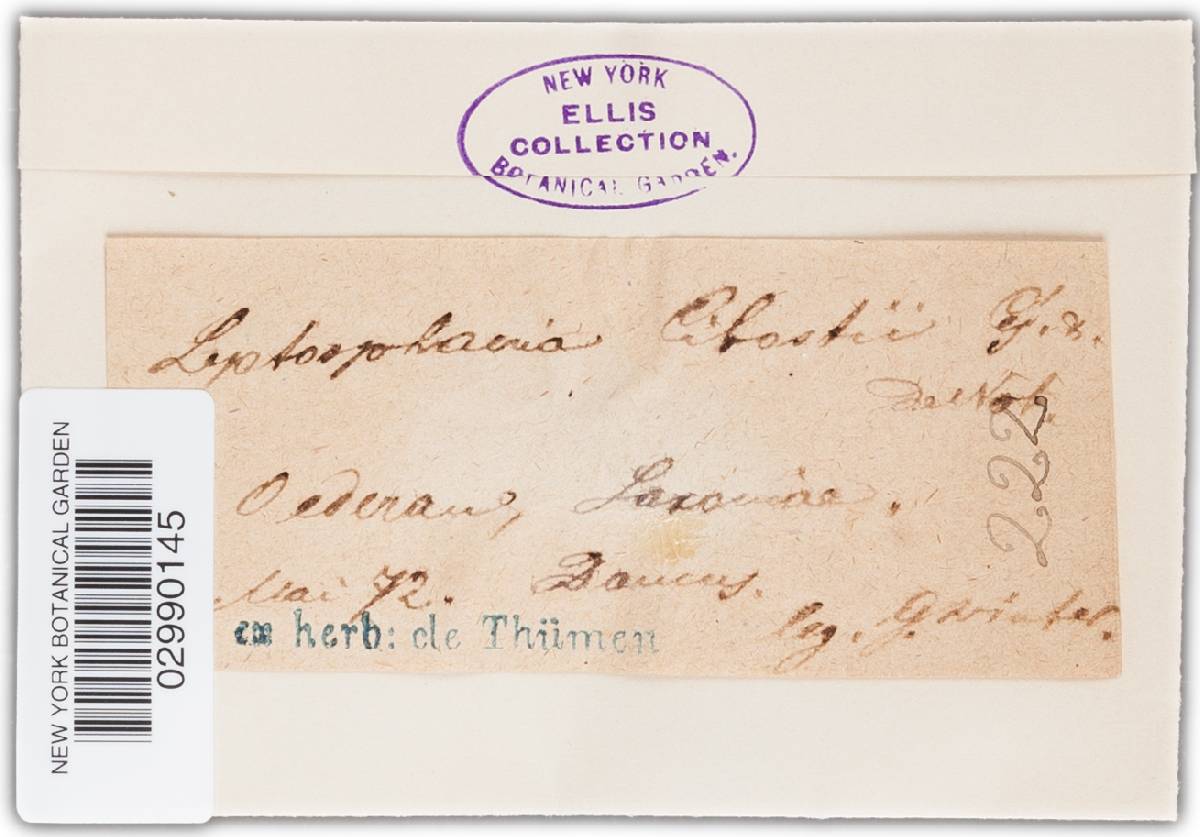 NEW YORK
ELLIS
COLLECTION
BOTANICAL GARDEN.
Leptosphaeria Cibostii Cf. &.
De Not.
222
Oederan, Saxoniae.
Mai 72. Daucus.
leg. G. Winter.
ex herb: de Thümen
NEW YORK BOTANICAL GARDEN
02990145